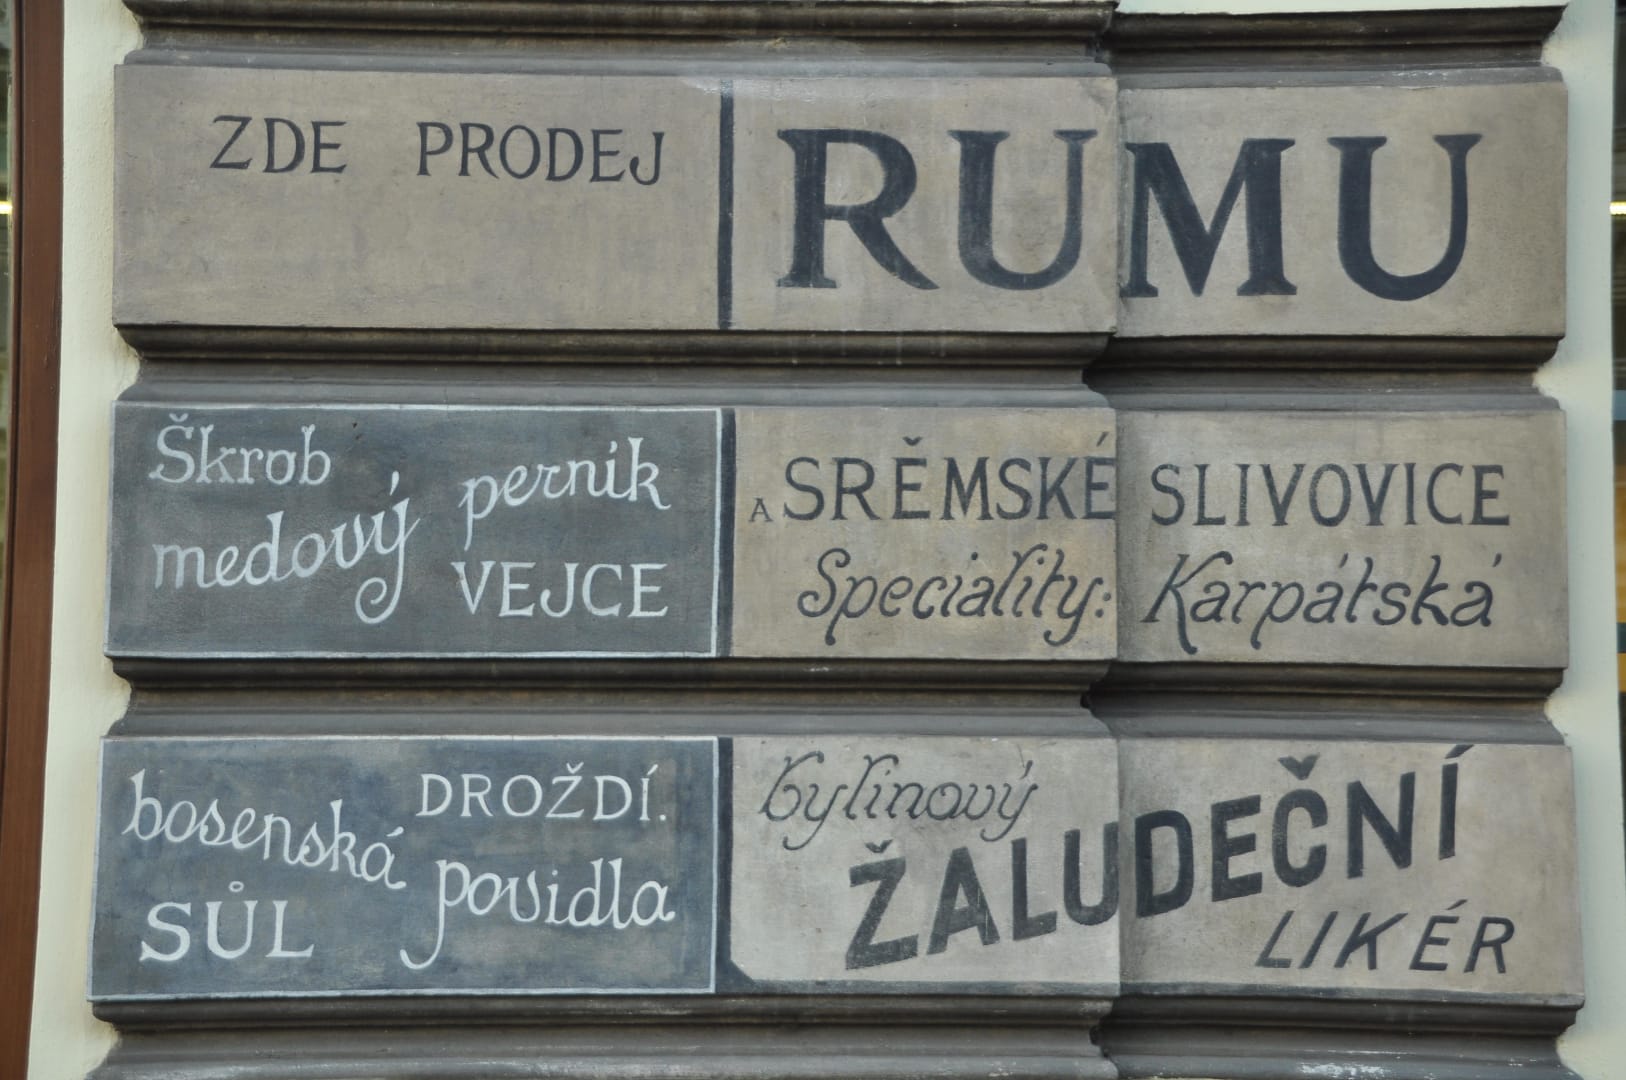 ZDE PRODEJ
RUMU
Škrob
medový perník
VEJCE
A SRĚMSKÉ SLIVOVICE
Speciality: Karpátská
DROŽDÍ.
bosenská povidla
SŮL
bylinový
ŽALUDEČNÍ
LIKÉR